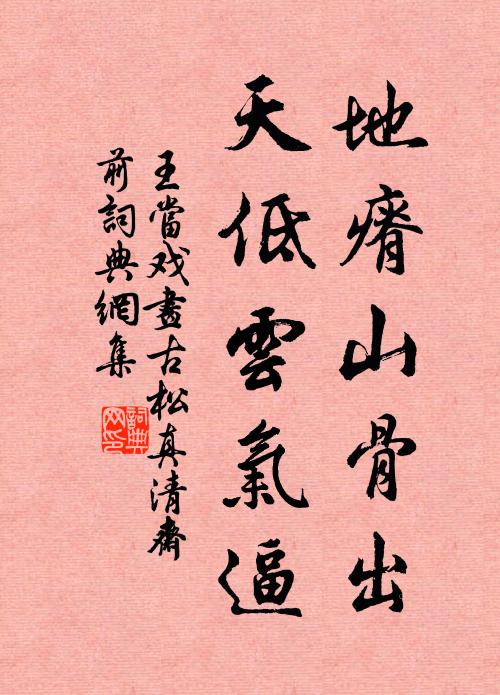 地瘠山骨出
天低雲氣逼
王當戏畫古松真清齋
前詞典網集
詞典
网印